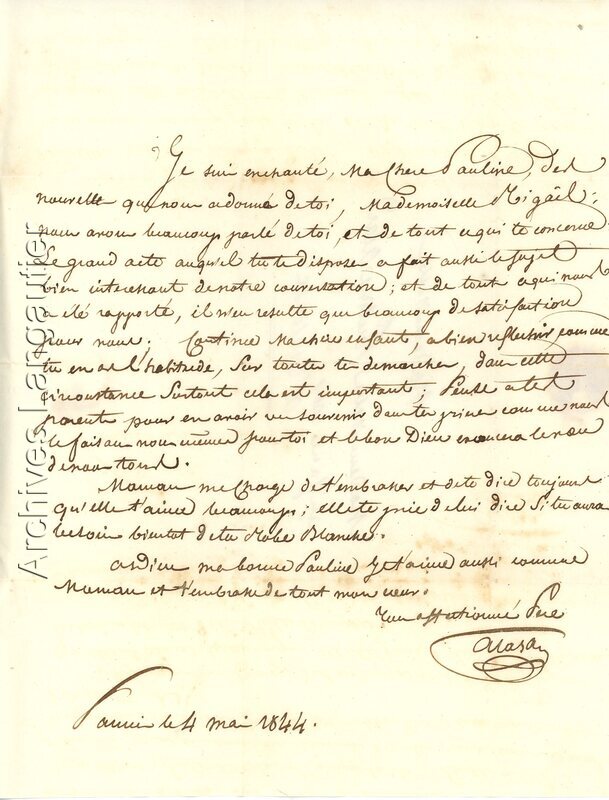 Je suis enchanté, Ma Chere Pauline, des
nouvelle que nous a donné de toi, Mademoiselle Migaël;
nous avons beaucoup parlé de toi, et de tout ce qui te concerne
Le grand acte auquel tu te dispose a fait aussi le sujet
bien interessant de notre conversation; et de tout ce qui nous
a été rapporté, il n'en resulte que beaucoup de satisfaction
pour nous. Continue ma chere enfant, a bien reflechir comme
tu en as l'habitude, Sur toutes tes demarches, dans cette
circonstance Surtout cela est important; Pense a tes
parents pour en avoir un souvenir dans tes prieres comme nous
le faisons nous meme pour toi et le bon Dieu exaucera le vœu
de nous tous.
Maman me charge de t'embrasser et de te dire toujours
qu'elle t'aime beaucoups; elle te prie de lui dire Si tu auras
besoin bientot de ta Robe Blanche.
adieu ma bonne Pauline Je t'aime aussi comme
Maman et t'embrasse de tout mon cœur.
Ton affectionné Pere
le 4 mai 1844.
Archives Langautier